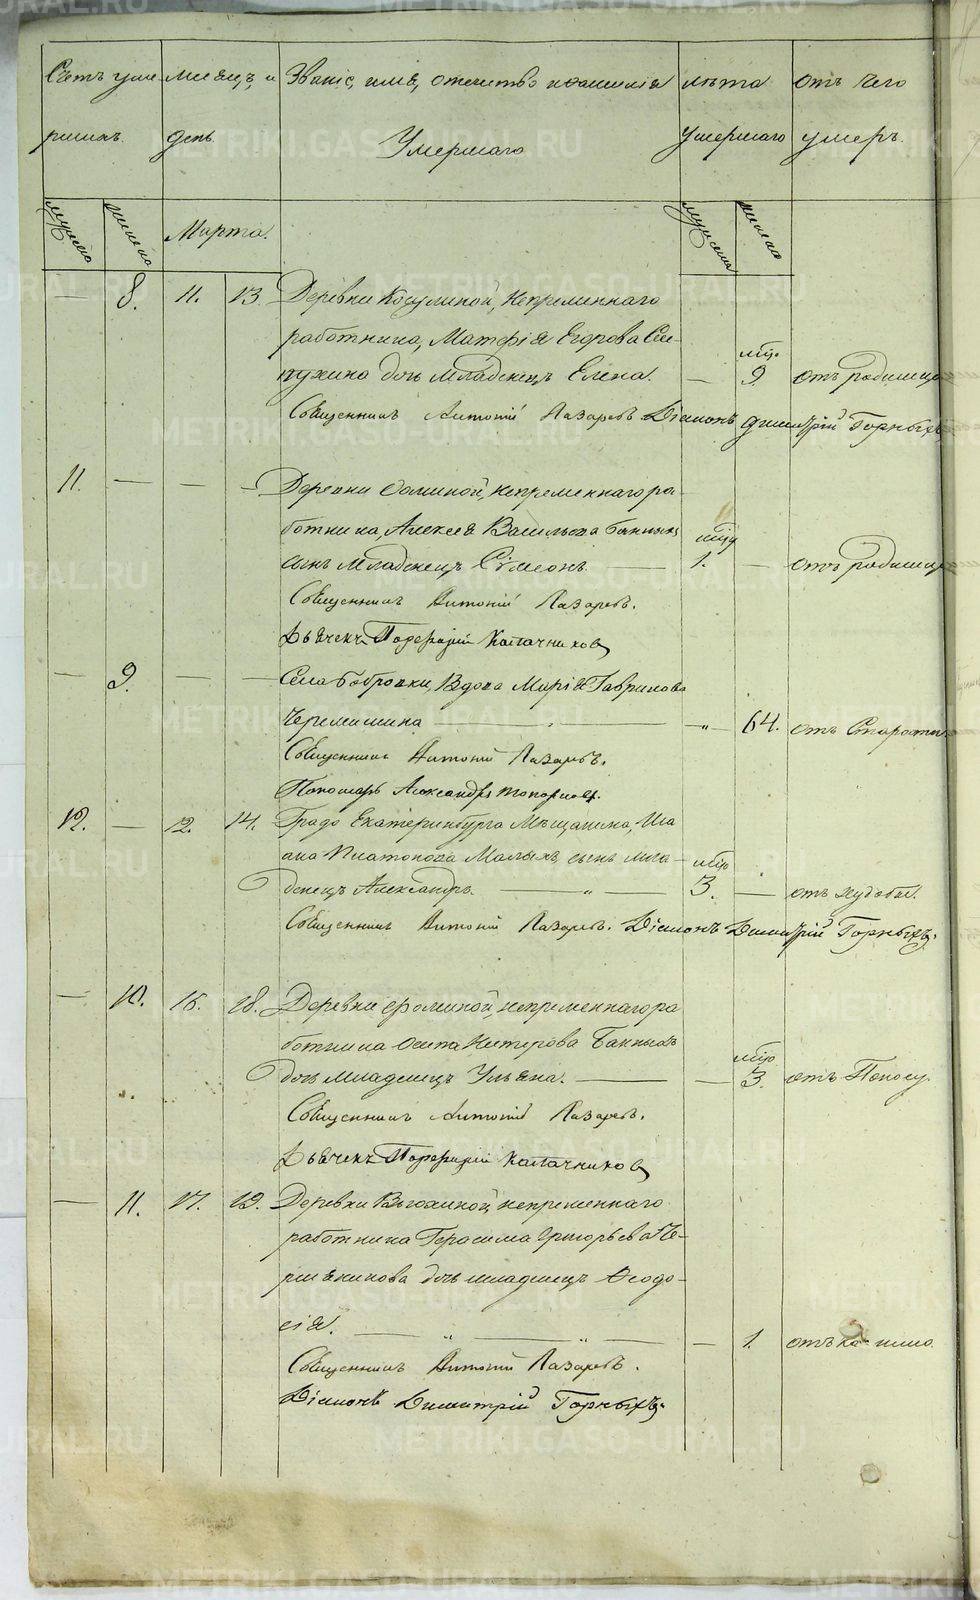 Счетъ уме-
ршихъ.
Мѣсяцъ и
день.
Званіе, имя, отечество и фамилія
Умершаго
лѣта
умершаго
отъ чего
умеръ.
мужеска
женска
Марта.
мужеска
женска
— 8. 11. 13. Деревни Косулиной, непременнаго
работника, Матфія Егорова
дочь младенецъ Елена. — мѣс. 9. отъ родимца
Священникъ Антоній Лазаревъ Діаконъ Димитрій Горныхъ
11. — — — Деревни непременнаго ра-
ботника, Алексея Васильева Банных
сынъ младенецъ Сѵмеонъ. — 1. — отъ родимца
Священникъ Антоній Лазаревъ.
Дьячекъ Порфирій Калачников
— 9. — — Села Бобровки, Вдова Марія Гаврилова
Черемисина — „ — „ 64. отъ Старости
Священникъ Антоній Лазаревъ.
Пономарь Александръ Топорковъ.
12. — 12. 14. Градо Екатеринбурга Мѣщанина, Ива
ана Платонова Малыхъ сынъ мла-
денецъ Александръ. — „ — 3. — отъ худобы.
Священникъ Антоній Лазаревъ. Діаконъ Димитрій Горныхъ.
— 10. 16. 18. Деревни Фоминой, непременнаго ра
ботника Осипа Нестерова Банныхъ
дочь младенецъ Ульяна. — — 3. отъ Поносу
Священникъ Антоній Лазаревъ.
Дьячекъ Порфирій Калачников
— 11. 17. 19. Деревни непременнаго
работника Герасима Григорьева
дочь младенецъ Ѳеодо-
сія. — „ — „ — 1. отъ кашлю
Священникъ Антоній Лазаревъ.
Діаконъ Димитрій Горныхъ.
METRIKI.GASO-URAL.RU